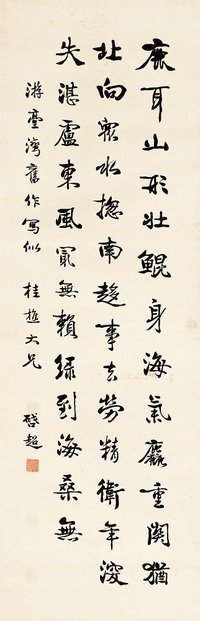 鹿耳山形壯鯤身海氣麤重關猶
北向眾水揔南趍事去勞精衛年深
失湛盧東風冣無賴綠到海桑無
游臺灣舊作寫似 桂大兄 啓超